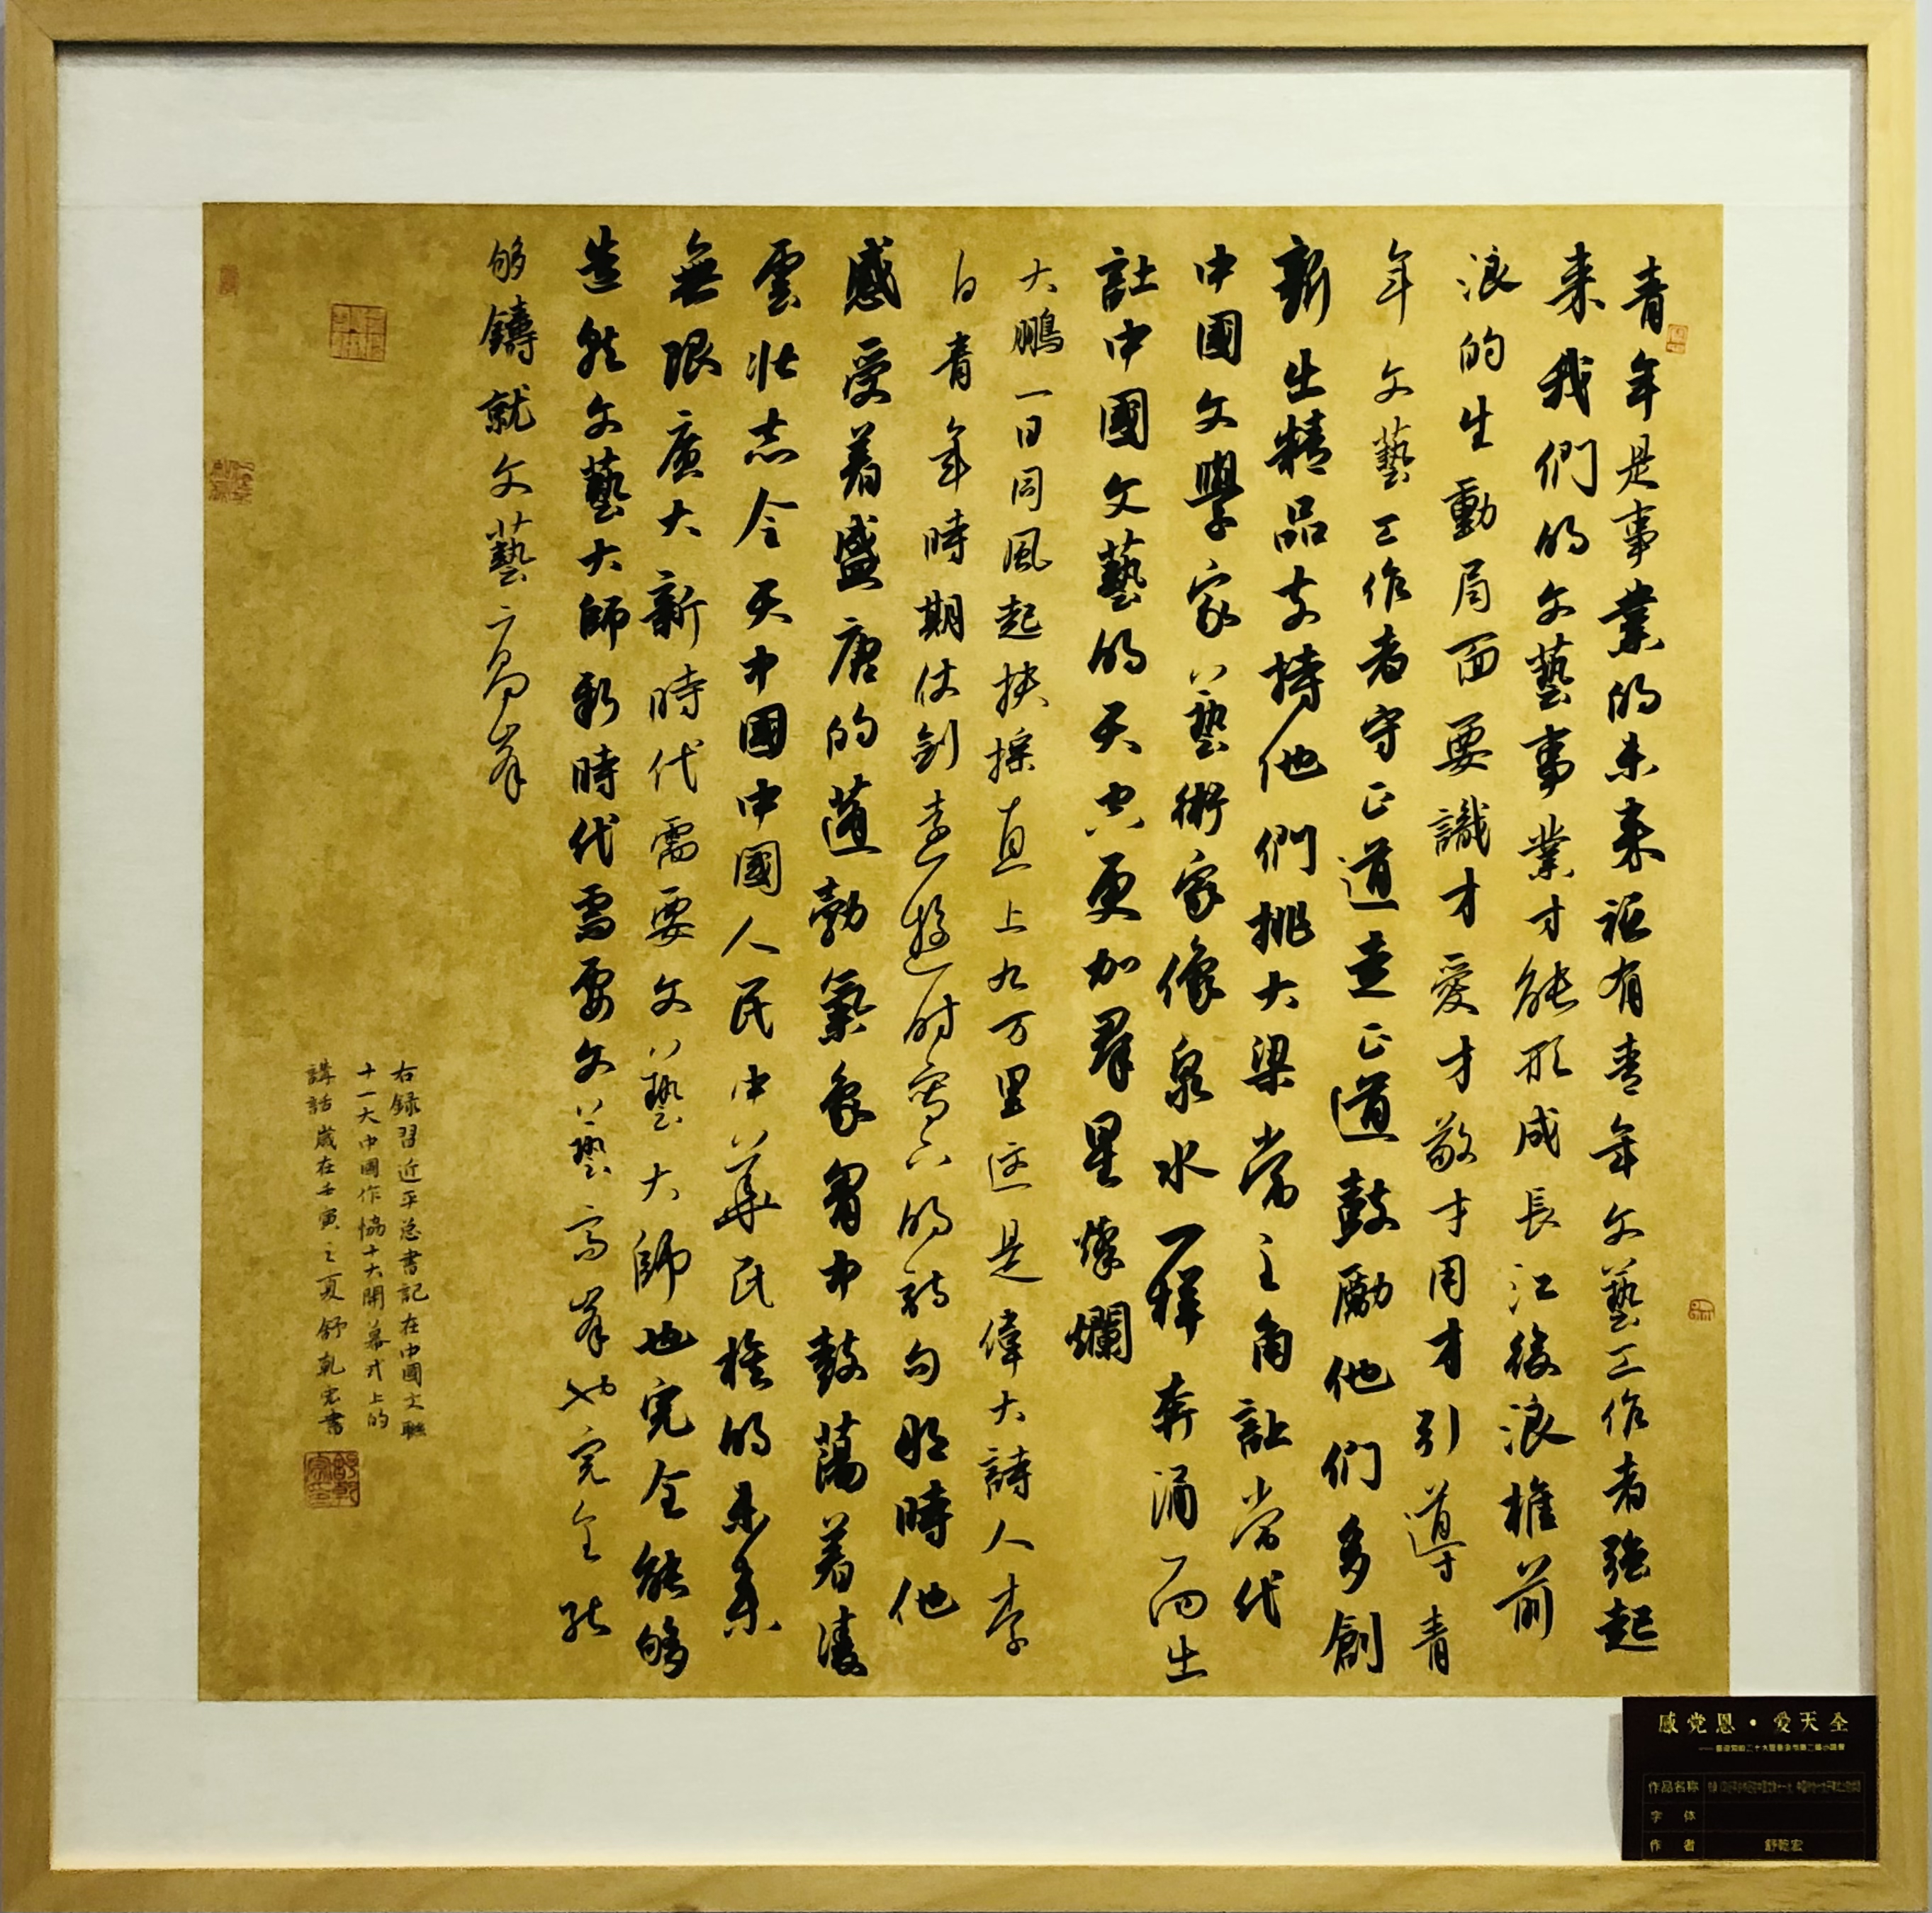 青年是事業的未来祗有青年文藝工作者強起
来我們的文藝事業才能形成長江後浪推前
浪的生動局面要識才愛才敬才用才引導青
年文藝工作者守正道走正道鼓勵他們多創
新出精品支持他們挑大梁當主角讓當代
中國文學家藝術家像泉水一樣奔涌而出
讓中國文藝的天空更加羣星燦爛
大鵬一日同風起扶搖直上九万里這是偉大詩人李
白青年時期仗劍遠遊時寫下的詩句那時他
感受着盛唐的蓬勃氣象胸中鼓蕩着凌
雲壮志今天中國中國人民中華民族的未来
無限廣大新時代需要文藝大師也完全能够
造就文藝大師新時代需要文藝高峯也完全能
够鑄就文藝高峯
右録習近平总書記在中國文聯
十一大中國作協十大開幕式上的
講話歲在壬寅之夏舒乾宏書
感党恩·爱天全
作品名称
字 体
作 者 舒乾宏